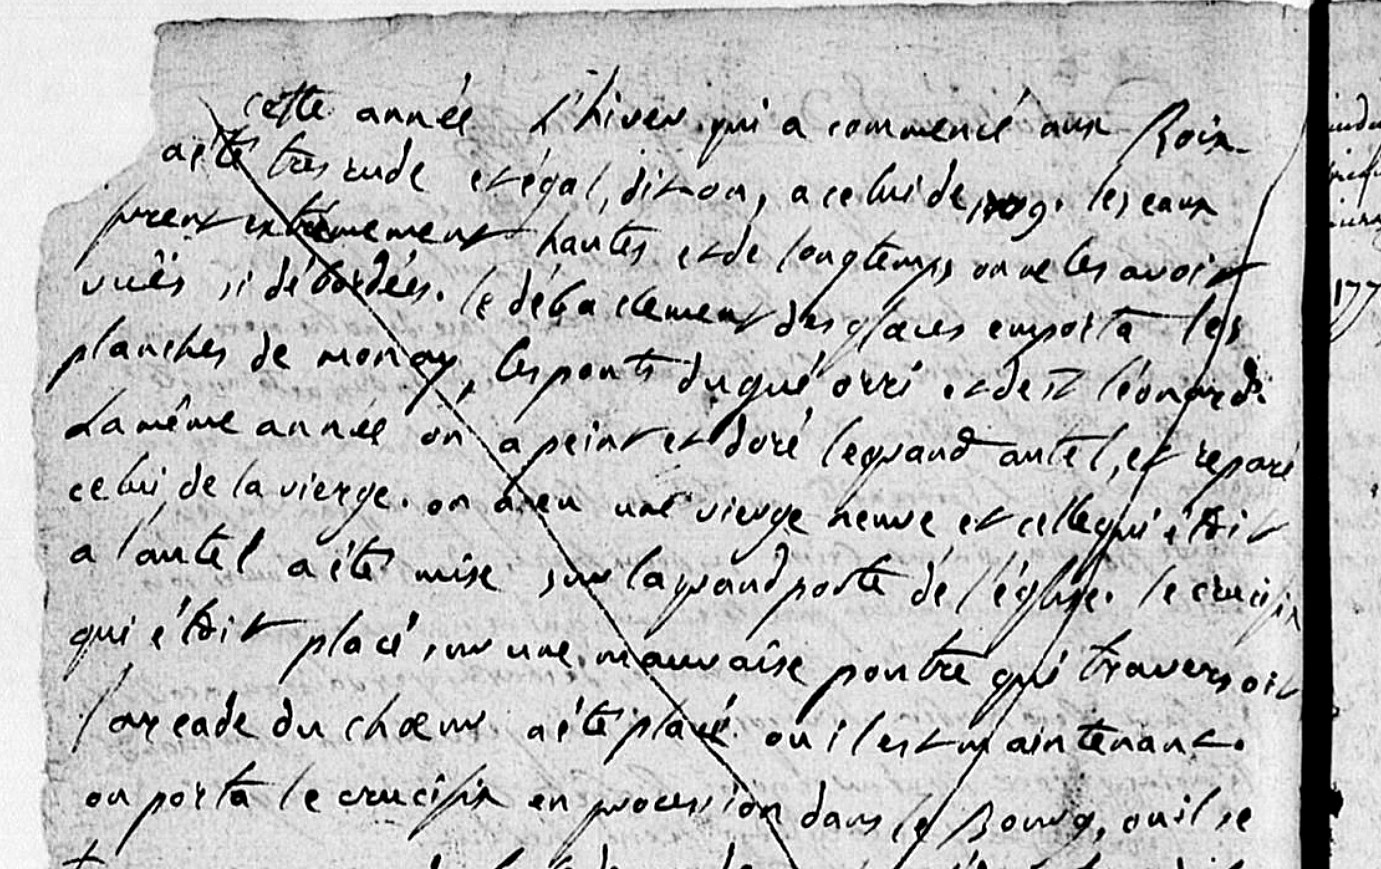 cette année L'hiver qui a commencé aux Rois
a été tres rude et égal, dit on, a celui de 1709. les eaux
furent extrêmement hautes et de longtemps on ne les avoit
vuës si débordées. le débaclement des glaces emporta les
planches de monay, les ponts du gué orri et de st léonard.
La même année on a peint et doré le grand autel, et reparé
celui de la vierge. on a eu une vierge neuve et celle qui étoit
a l'autel a été mise sur la grand porte de l'église. le crucifix
qui étoit placé sur une mauvaise poutre qui traversoit
l'arcade du chœur a été placé ou il est maintenant.
on porta le crucifix en procession dans le Bourg, ou il se